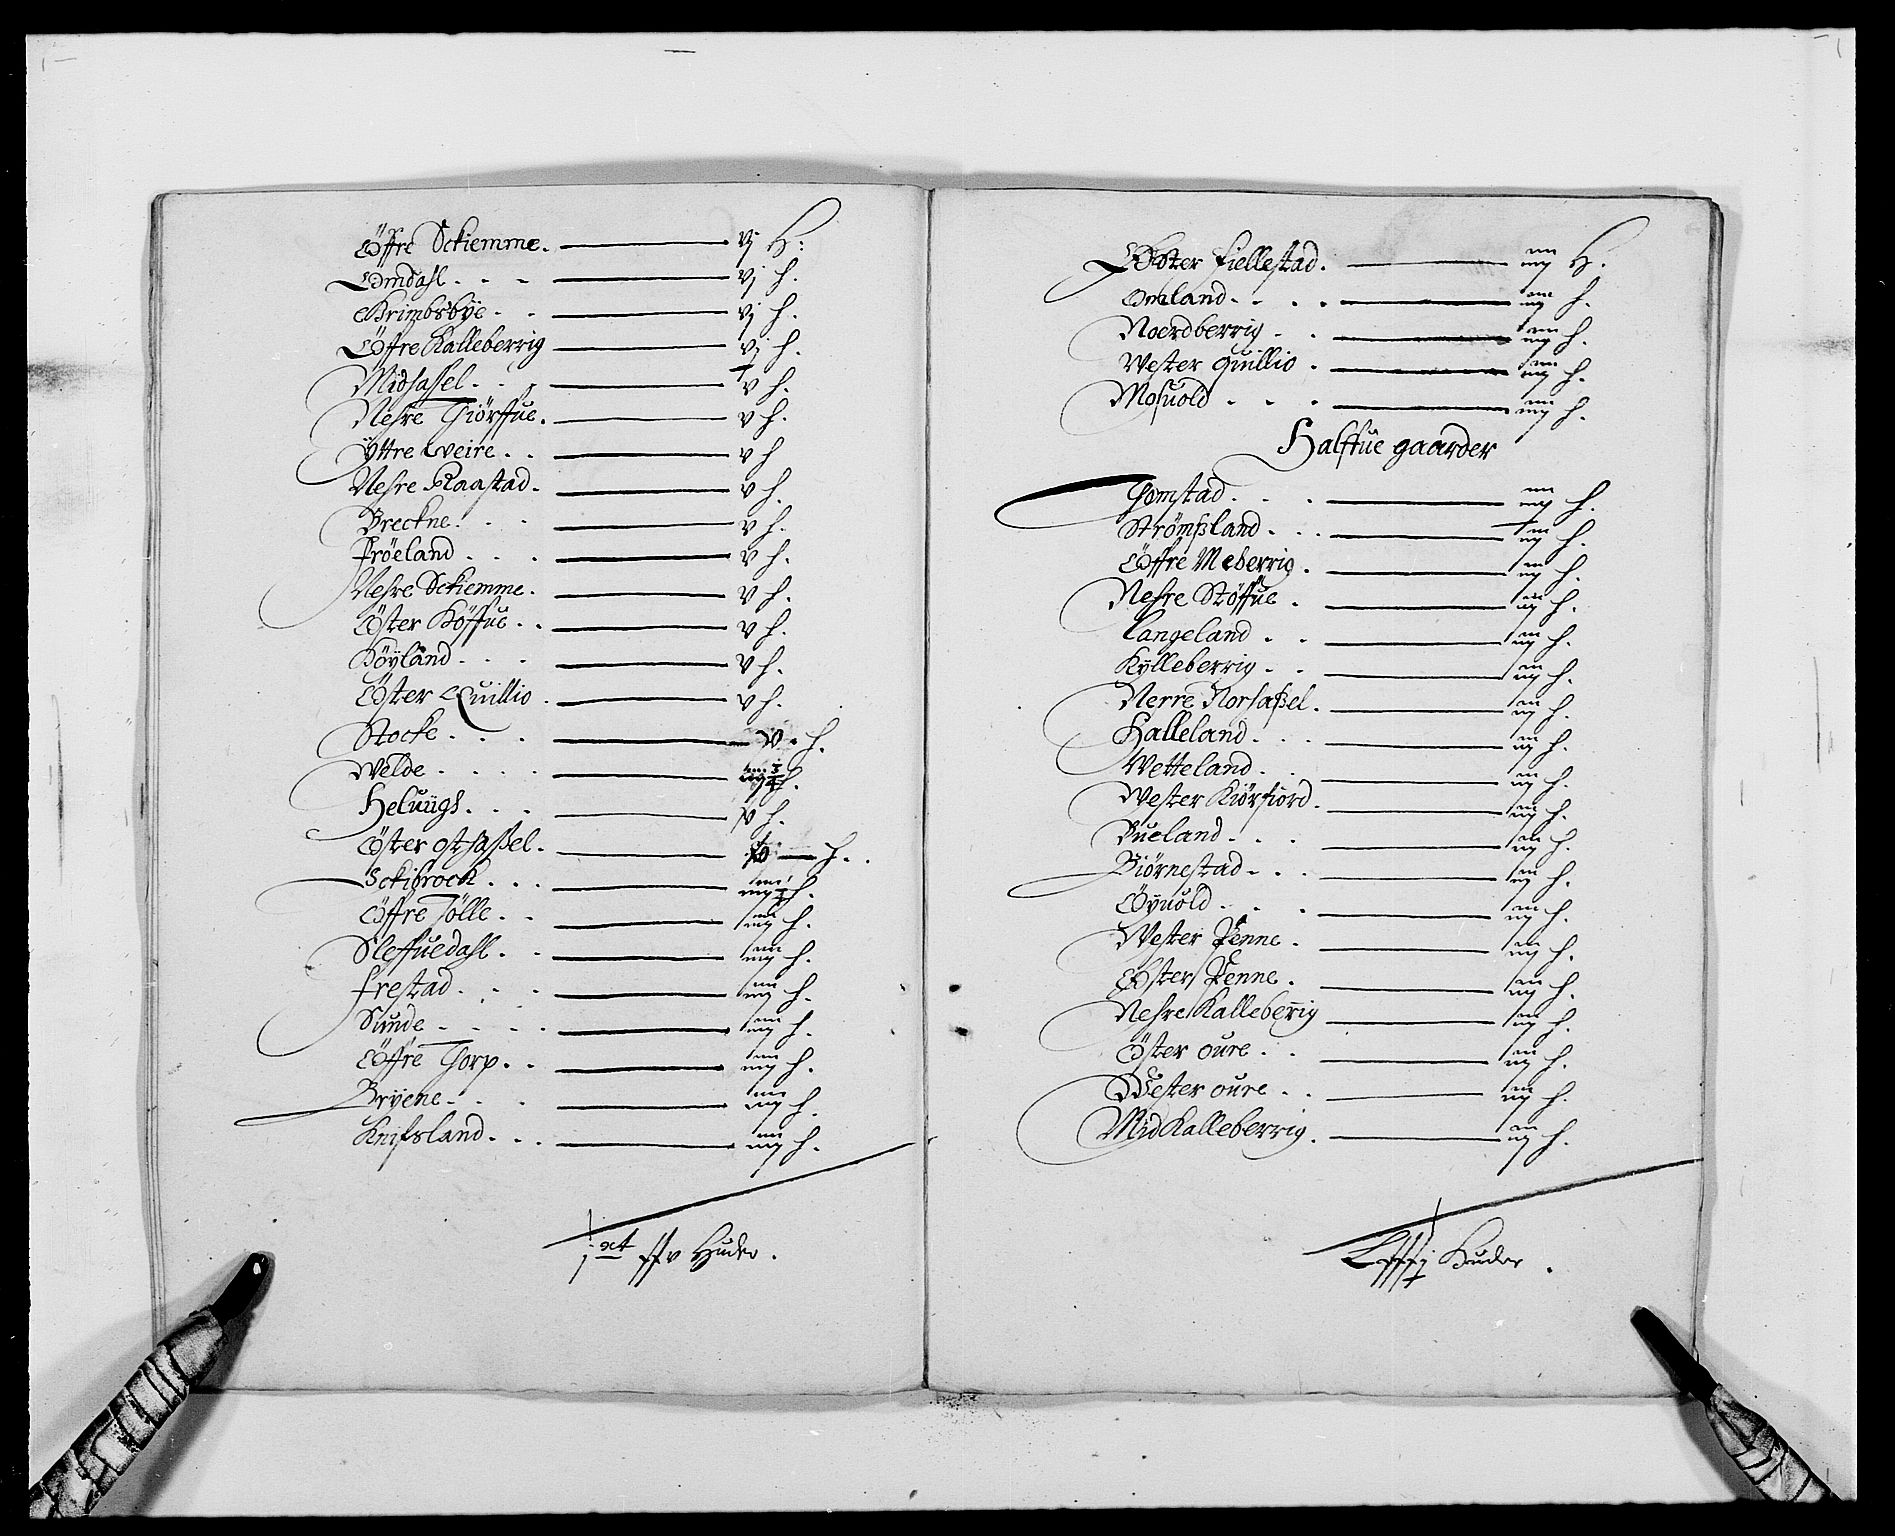 Öffre Sckiemme. vj H:
Omdahl. . . vj h.
Brimbsbÿe. . vj h.
Öffre Kalleberrig vj h.
Midhassel. . . v h.
Nehre Thiörffue. v h.
Ÿttre Weire. . v h
Nehre Raastad. v h.
Breckne. . . v h.
Fröeland . . . v h.
Nehre Sckiemme. v h.
Öster Höffue. . v h.
Höÿland. . . v h.
Öster Quillio. v h.
Stocke. . . v. h.
Welde. . . . iiij 3/4 h.
Heluiigh. . . v h.
Öster othaßel. h.
Sckibrock. . . iiij h.
Öffre Tölle. . iiij h.
Sleffuedahl. . iiij h.
Frestad. . . iiij h.
Sunde. . . . iiij h.
Öffre Thorp. . iiij h.
Brÿene. . . iiij h.
Knifsland. . . iiij h.
Huder.
Öster Fiellestad. iiij H.
Omland. . . . iiij h.
Noerdberrig. . iiij h.
Wester Quillio. iiij h.
Mosuold . . . iiij h.
Halffue gaarder
Thomstad. . . iiij h.
Strömßland. . . iiij h.
Öffre Meberrig. iiij h.
Nehre Stöffue. iiij h.
Langeland . . iiij h.
Kÿlleberrig. . iiij h.
Nerre Norhaßel. iiij h.
Halleland. . . iiij h.
Wetteland. . iiij h.
Wester Kiörfiord. iiij h.
Bueland. . . iiij h.
Biörnestad. . . iiij h.
Öÿuold. . . iiij h.
Wester Penne. iiij h.
Öster Penne. iiij h.
Nehre Kalleberrig iiij h.
Öster oure. . iiij h.
Wester oure. . iiij h.
Mid Kalleberrig. iiij h.
Huder.